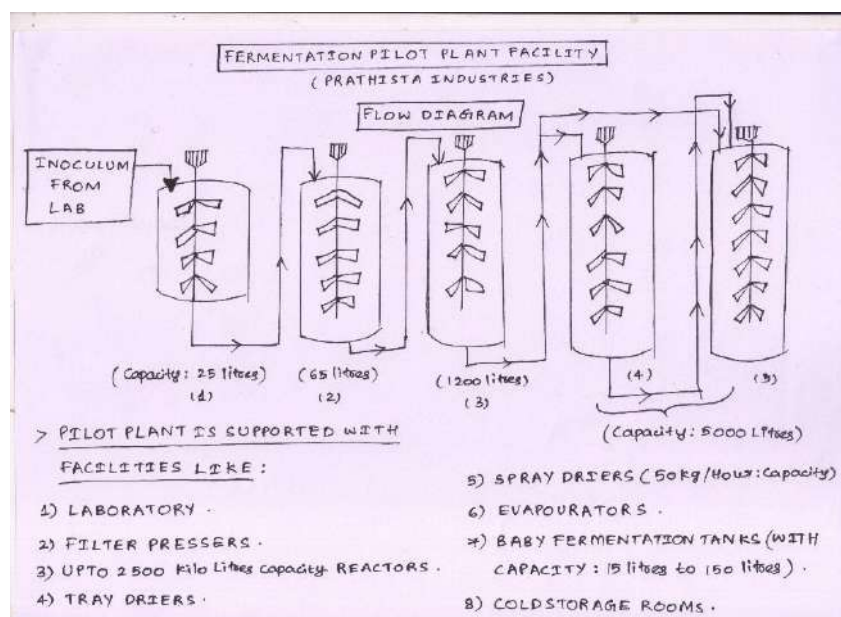 FERMENTATION PILOT PLANT FACILITY
(PRATHISTA INDUSTRIES)
FLOW DIAGRAM
INOCULUM
FROM
LAB
(Capacity: 25 litres)
(1)
(65 litres)
(2)
(1200 litres)
(3)
(4)
(5)
(Capacity: 5000 Litres)
> PILOT PLANT IS SUPPORTED WITH
FACILITIES LIKE:
1) LABORATORY.
2) FILTER PRESSERS.
3) UPTO 2500 Kilo Litres Capacity REACTORS.
4) TRAY DRIERS.
5) SPRAY DRIERS (50kg/Hour: Capacity)
6) EVAPOURATORS.
*) BABY FERMENTATION TANKS (WITH
CAPACITY: 15 litres to 150 litres).
8) COLD STORAGE ROOMS.